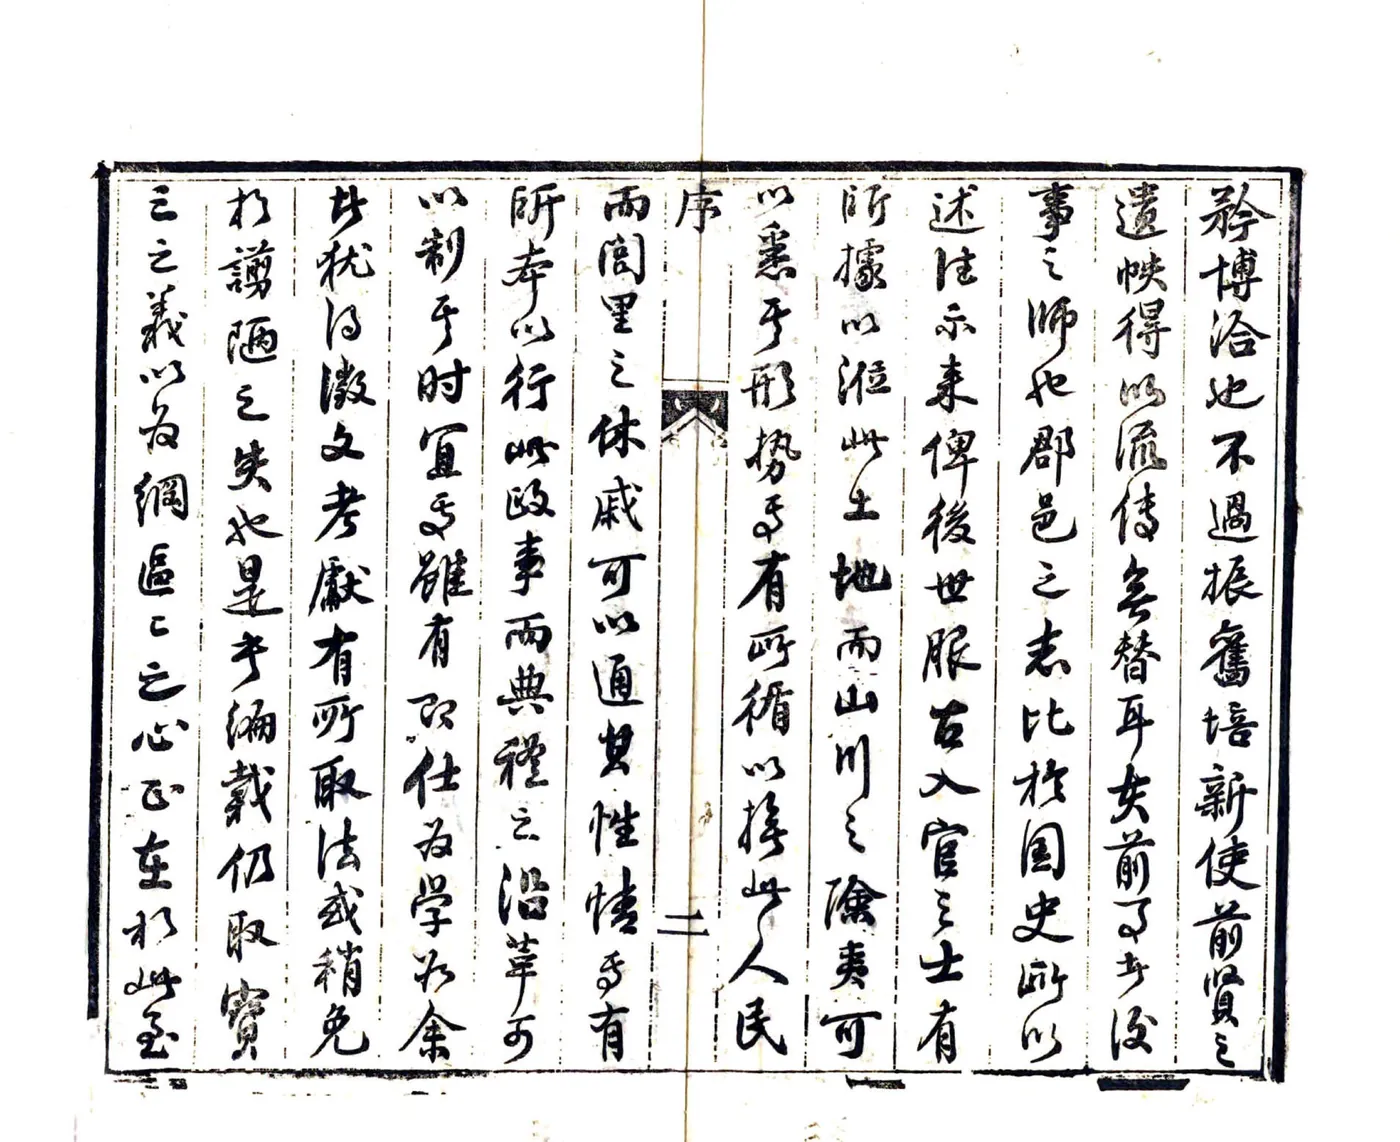 矜博洽也不過振舊培新使前賢之
遺帙得以流傳無替耳夫前事者後
事之師也郡邑之志比於國史所以
述往示来俾後世服古入官之士有
所據以涖此土地而山川之險夷可
以悉其形势焉有所循以揆此人民
序
二
而閭里之休戚可以通其性情焉有
所本以行此政事而典禮之沿革可
以制其时宜焉雖有即仕為学如余
者犹得徵文考獻有所取法或稍免
於謭陋之失也是書编載仍取寶
三之義以为綱區區之心正在於此至